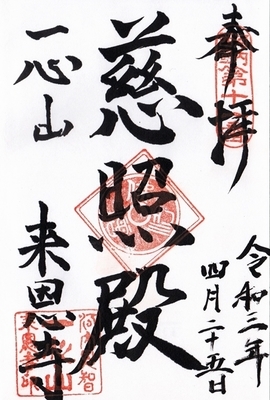 奉拝
令和三年
四月二十五日
慈照殿
一心山
来恩寺